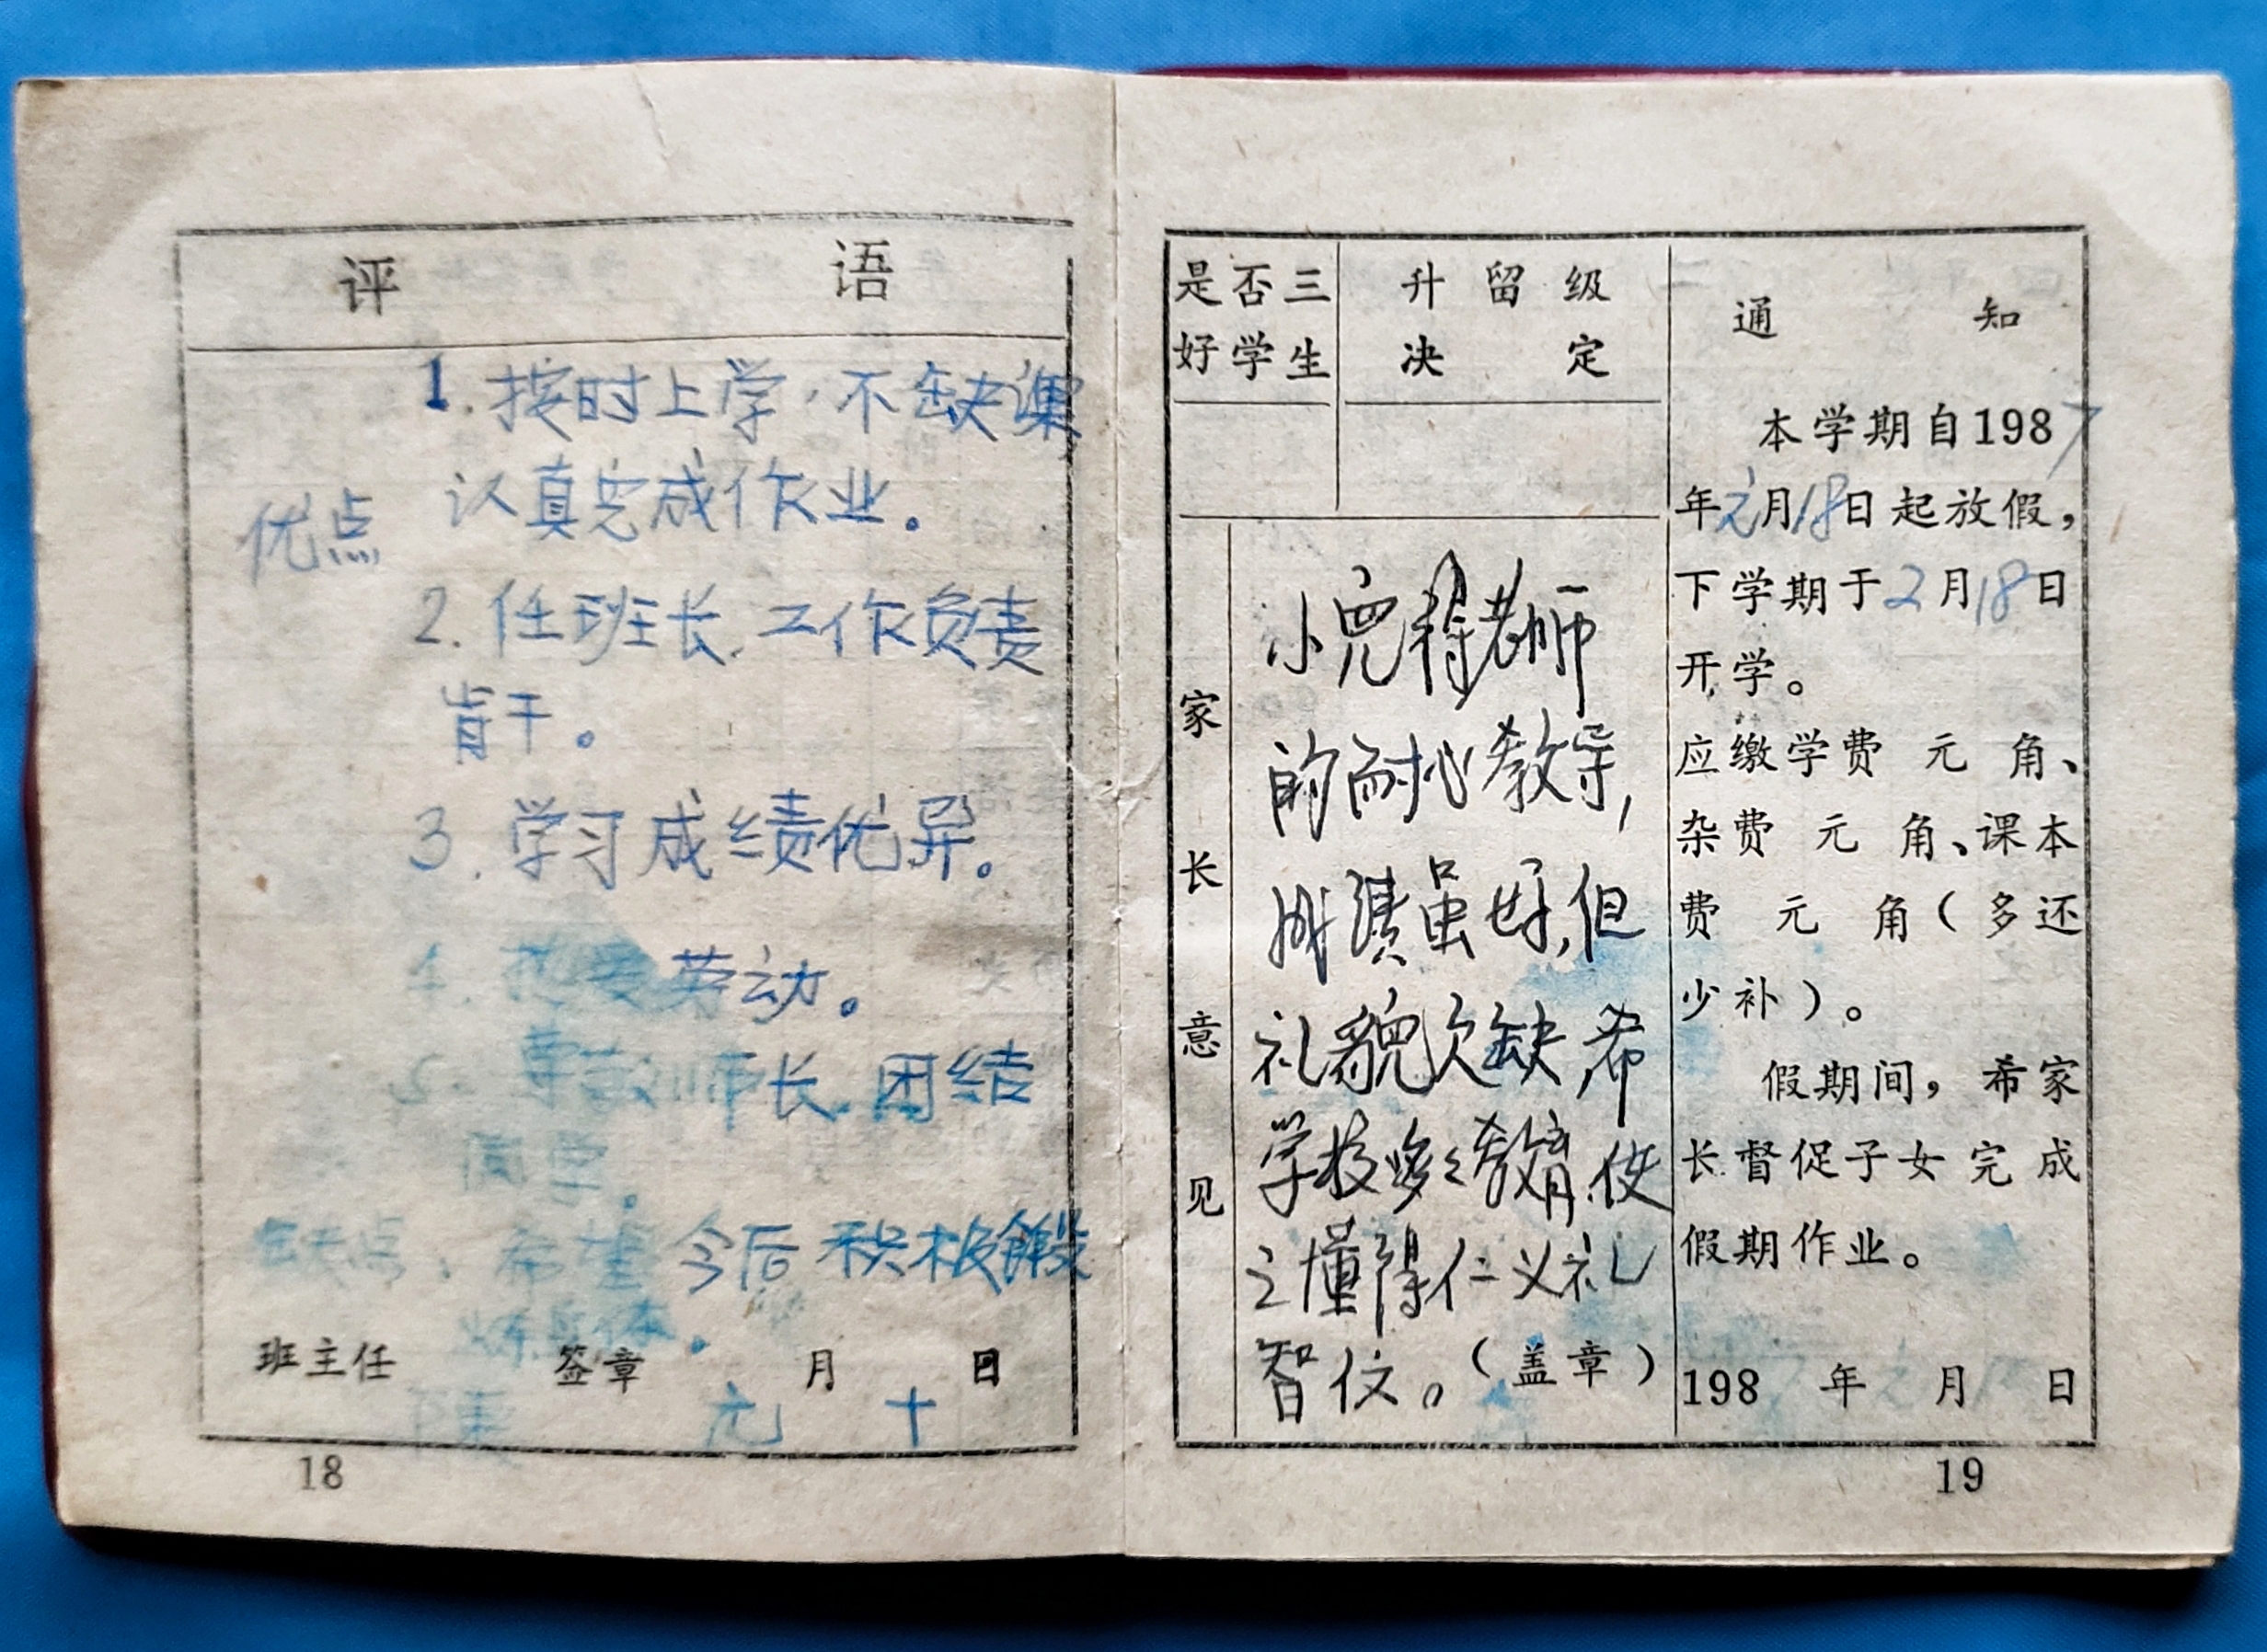 评语
1. 按时上学，不缺课
认真完成作业。
优点
2. 任班长，工作负责
肯干。
3. 学习成绩优异。
4. 热爱劳动。
5. 尊敬师长，团结
同学。
缺点：希望今后积极锻
炼身体。
班主任 签章 月 日
陈 元 十
18
是否三
好学生
升留级
决定
家长意见
小儿得老师
的耐心教导，
成绩虽好，但
礼貌欠缺，希
学校多多教育，使
之懂得仁义礼
智仪。（盖章）
通知
本学期自1987
年元月18日起放假，
下学期于2月18日
开学。
应缴学费 元 角、
杂费 元 角、课本
费 元 角（多还
少补）。
假期间，希家
长督促子女完成
假期作业。
198 年 月 日
19